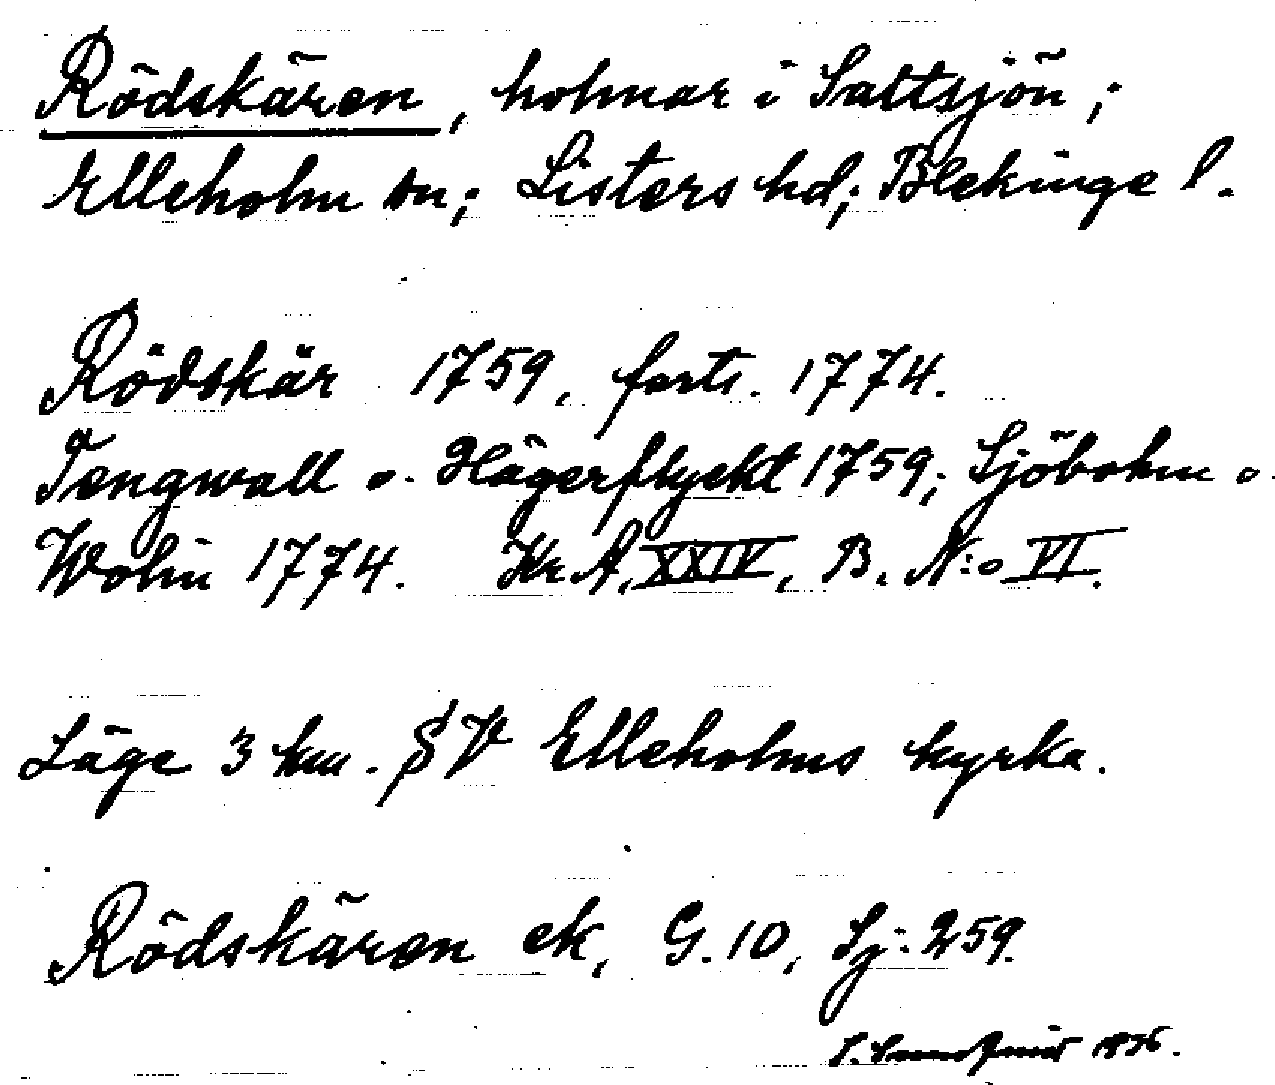 Rödskären, holmar i Saltsjön;
Elleholm sn; Listers hd; Blekinge l.
Rödskär 1759, forts. 1774.
Tengwall o. Hägerflyckt 1759; Sjöbohm o.
Wohn 1774. Kr. A, XXIV, B. N:o VI.
Läge 3 km. SV Elleholms kyrka.
Rödskären ek, G. 10, Sj: 259.